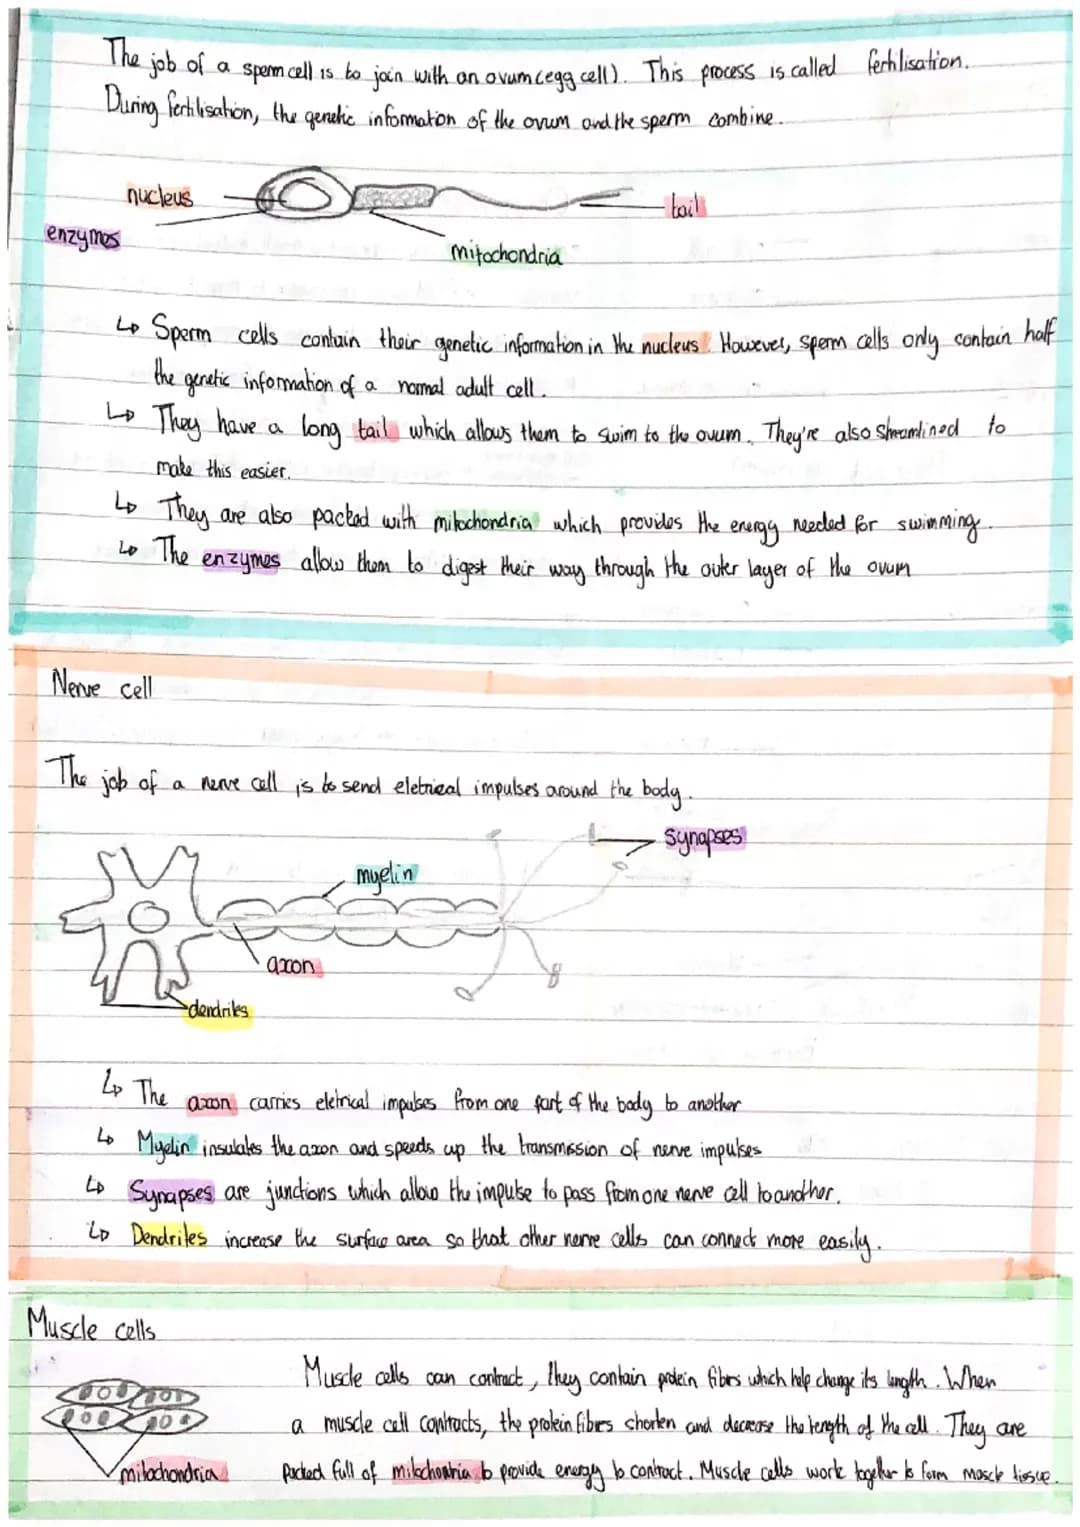 The job of a sperm cell is to join with an ovum (egg cell). This process is called fertilisation.
During fertilisation, the genetic information of the ovum and the sperm combine.
nucleus
tail
enzymes
mitochondria
↳ Sperm cells contain their genetic information in the nucleus. However, sperm cells only contain half
the genetic information of a normal adult cell.
↳ They have a long tail which allows them to swim to the ovum. They're also streamlined to
make this easier.
↳ They are also packed with mitochondria which provides the energy needed for swimming.
↳ The enzymes allow them to digest their way through the outer layer of the ovum
Nerve cell
The job of a nerve cell is to send eletrical impulses around the body.
synapses
myelin
axon
dendrites
↳ The axon carries eletrical impulses from one part of the body to another
↳ Myelin insulates the axon and speeds up the transmission of nerve impulses
↳ Synapses are junctions which allow the impulse to pass from one nerve cell to another.
↳ Dendriles increase the surface area so that other nerve cells can connect more easily.
Muscle cells
Muscle cells can contract, they contain protein fibres which help change its length. When
a muscle cell contracts, the protein fibres shorten and decrease the length of the cell. They are
mitochondria
packed full of mitochontria to provide energy to contract. Muscle cells work together to form muscle tissue.